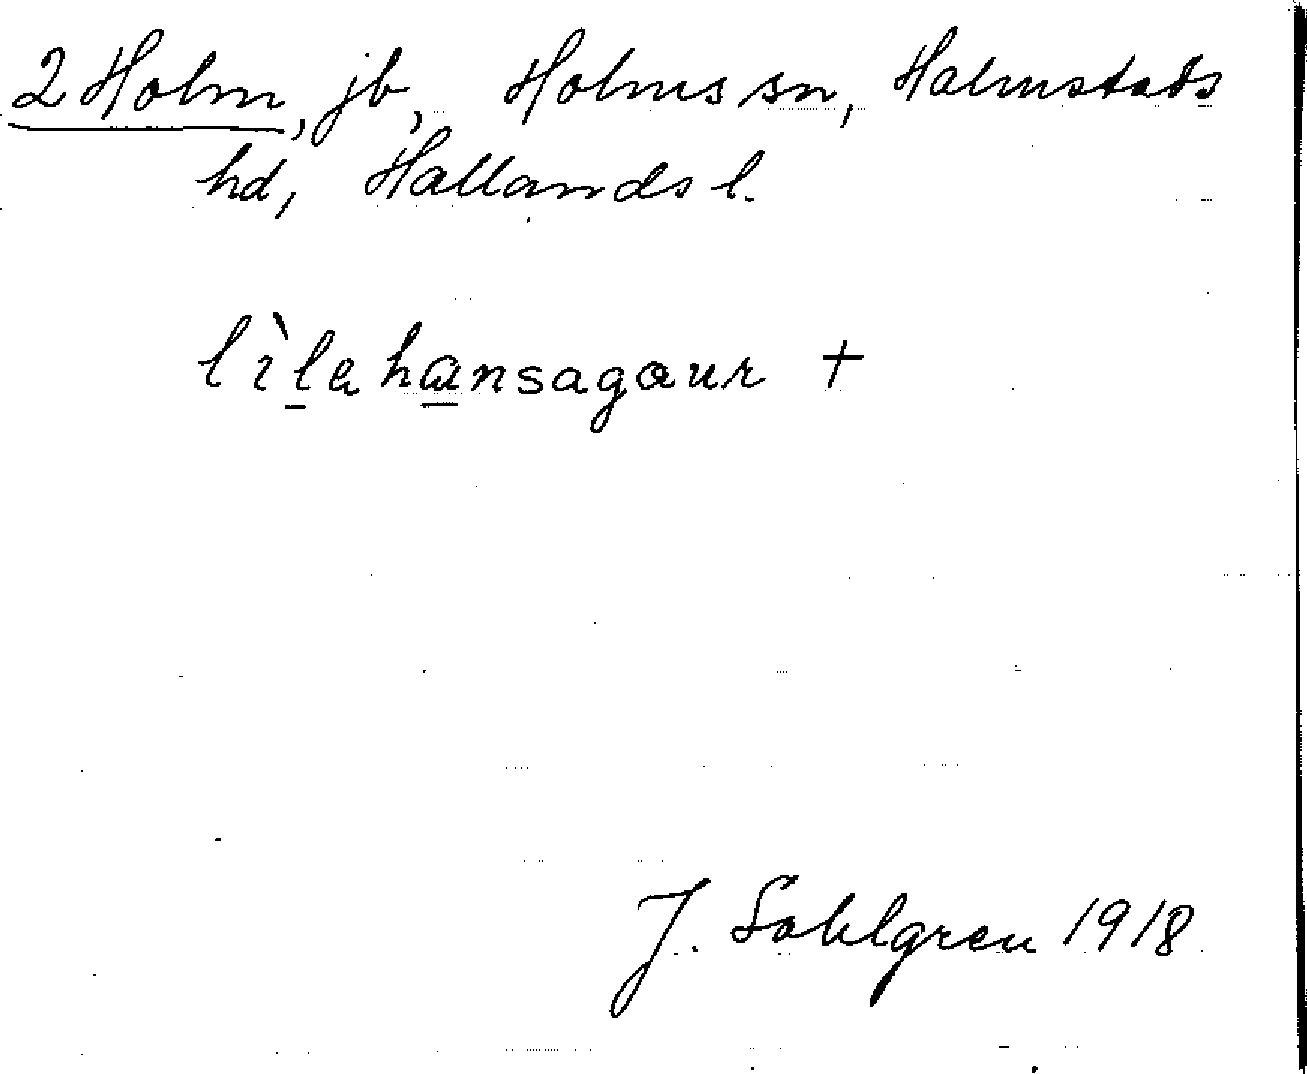 2 Holm, jb, Holms sn, Halmstads
hd, Hallands l.
lìlahansagaur +
J. Sahlgren 1918